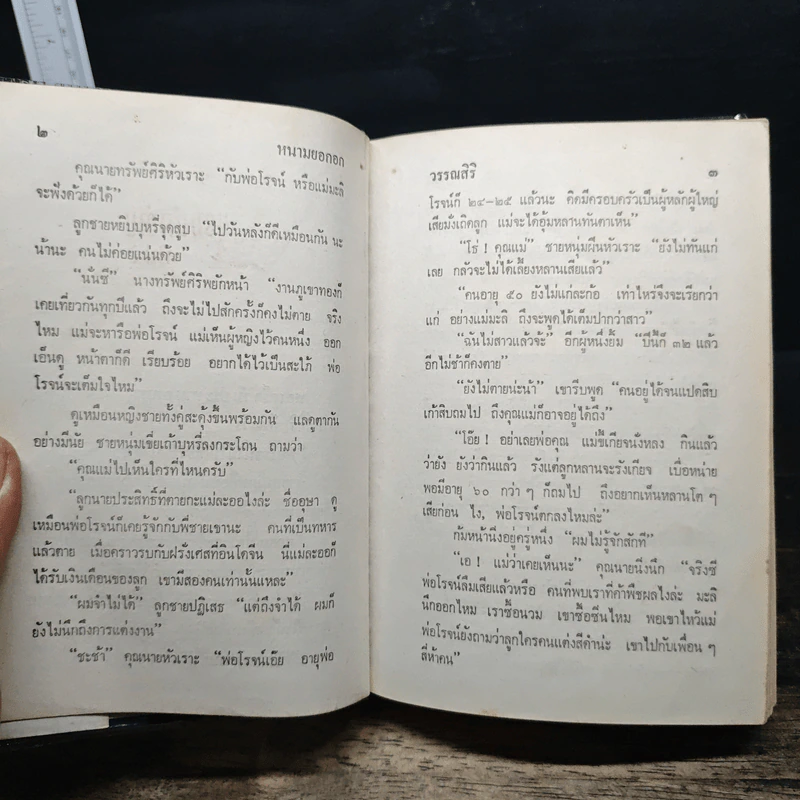 ๒
หนามยอกอก
คุณนายทรัพย์ศิริหัวเราะ “กับพ่อโรจน์ หรือแม่มะลิ
จะฟังด้วยก็ได้”
ลูกชายหยิบบุหรี่จุดสูบ “ไปวันหลังก็ดีเหมือนกัน นะ
น้านะ คนไม่ค่อยแน่นด้วย”
“นั่นซี” นางทรัพย์ศิริพยักหน้า “งานภูเขาทองก็
เคยเที่ยวกันทุกปีแล้ว ถึงจะไม่ไปสักครั้งก็คงไม่ตาย จริง
ไหม แม่จะหารือพ่อโรจน์ แม่เห็นผู้หญิงไว้คนหนึ่ง ออก
เอ็นดู หน้าตาก็ดี เรียบร้อย อยากได้ไว้เป็นสะใภ้ พ่อ
โรจน์จะเต็มใจไหม”
ดูเหมือนหญิงชายทั้งคู่สะดุ้งขึ้นพร้อมกัน แลดูตากัน
อย่างมีนัย ชายหนุ่มเขี่ยเถ้าบุหรี่ลงกระโถน ถามว่า
“คุณแม่ไปเห็นใครที่ไหนครับ”
“ลูกนายประสิทธิ์ที่ตายกะแม่ละออไงล่ะ ชื่ออุษา ดู
เหมือนพ่อโรจน์ก็เคยรู้จักกับพี่ชายเขานะ คนที่เป็นทหาร
แล้วตาย เมื่อคราวรบกับฝรั่งเศสที่อินโดจีน นี่แม่ละออก็
ได้รับเงินเดือนของลูก เขามีสองคนเท่านั้นแหละ”
“ผมจำไม่ได้” ลูกชายปฏิเสธ “แต่ถึงจำได้ ผมก็
ยังไม่นึกถึงการแต่งงาน”
“ชะช้า” คุณนายหัวเราะ “พ่อโรจน์เอ๊ย อายุพ่อ
วรรณสิริ
๓
โรจน์ก็ ๒๔–๒๕ แล้วนะ คิดมีครอบครัวเป็นผู้หลักผู้ใหญ่
เสียมั่งเถิดลูก แม่จะได้อุ้มหลานทันตาเห็น”
“โธ่ ! คุณแม่” ชายหนุ่มฝืนหัวเราะ “ยังไม่ทันแก่
เลย กลัวจะไม่ได้เลี้ยงหลานเสียแล้ว”
“คนอายุ ๕๐ ยังไม่แก่ละก้อ เท่าไหร่จึงจะเรียกว่า
แก่ อย่างแม่มะลิ ถึงจะพูดได้เต็มปากว่าสาว”
“ฉันไม่สาวแล้วจ้ะ” อีกผู้หนึ่งยิ้ม “ปีนี้ก็ ๓๒ แล้ว
อีกไม่ช้าก็คงตาย”
“ยังไม่ตายน่ะน้า” เขารีบพูด “คนอยู่ได้จนแปดสิบ
เก้าสิบถมไป ถึงคุณแม่ก็อาจอยู่ได้ถึง”
“โอ๊ย ! อย่าเลยพ่อคุณ แม่ขี้เกียจนั่งหลง กินแล้ว
ว่ายัง ยังว่ากินแล้ว รังแต่ลูกหลานจะรังเกียจ เบื่อหน่าย
พอมีอายุ ๖๐ กว่า ๆ ก็ถมไป ถึงอยากเห็นหลานโต ๆ
เสียก่อน ไง, พ่อโรจน์ตกลงไหมล่ะ”
ก้มหน้านิ่งอยู่ครู่หนึ่ง “ผมไม่รู้จักสักที”
“เอ ! แม่ว่าเคยเห็นนะ” คุณนายนิ่งนึก “จริงซี
พ่อโรจน์ลืมเสียแล้วหรือ คนที่พบเราที่ค้าพืชผลไงล่ะ มะลิ
นึกออกไหม เราซื้อนวม เขาซื้อซีนไหม พอเขาไหว้แม่
พ่อโรจน์ยังถามว่าลูกใครคนแต่งสีดำน่ะ เขาไปกับเพื่อน ๆ
สี่ห้าคน”